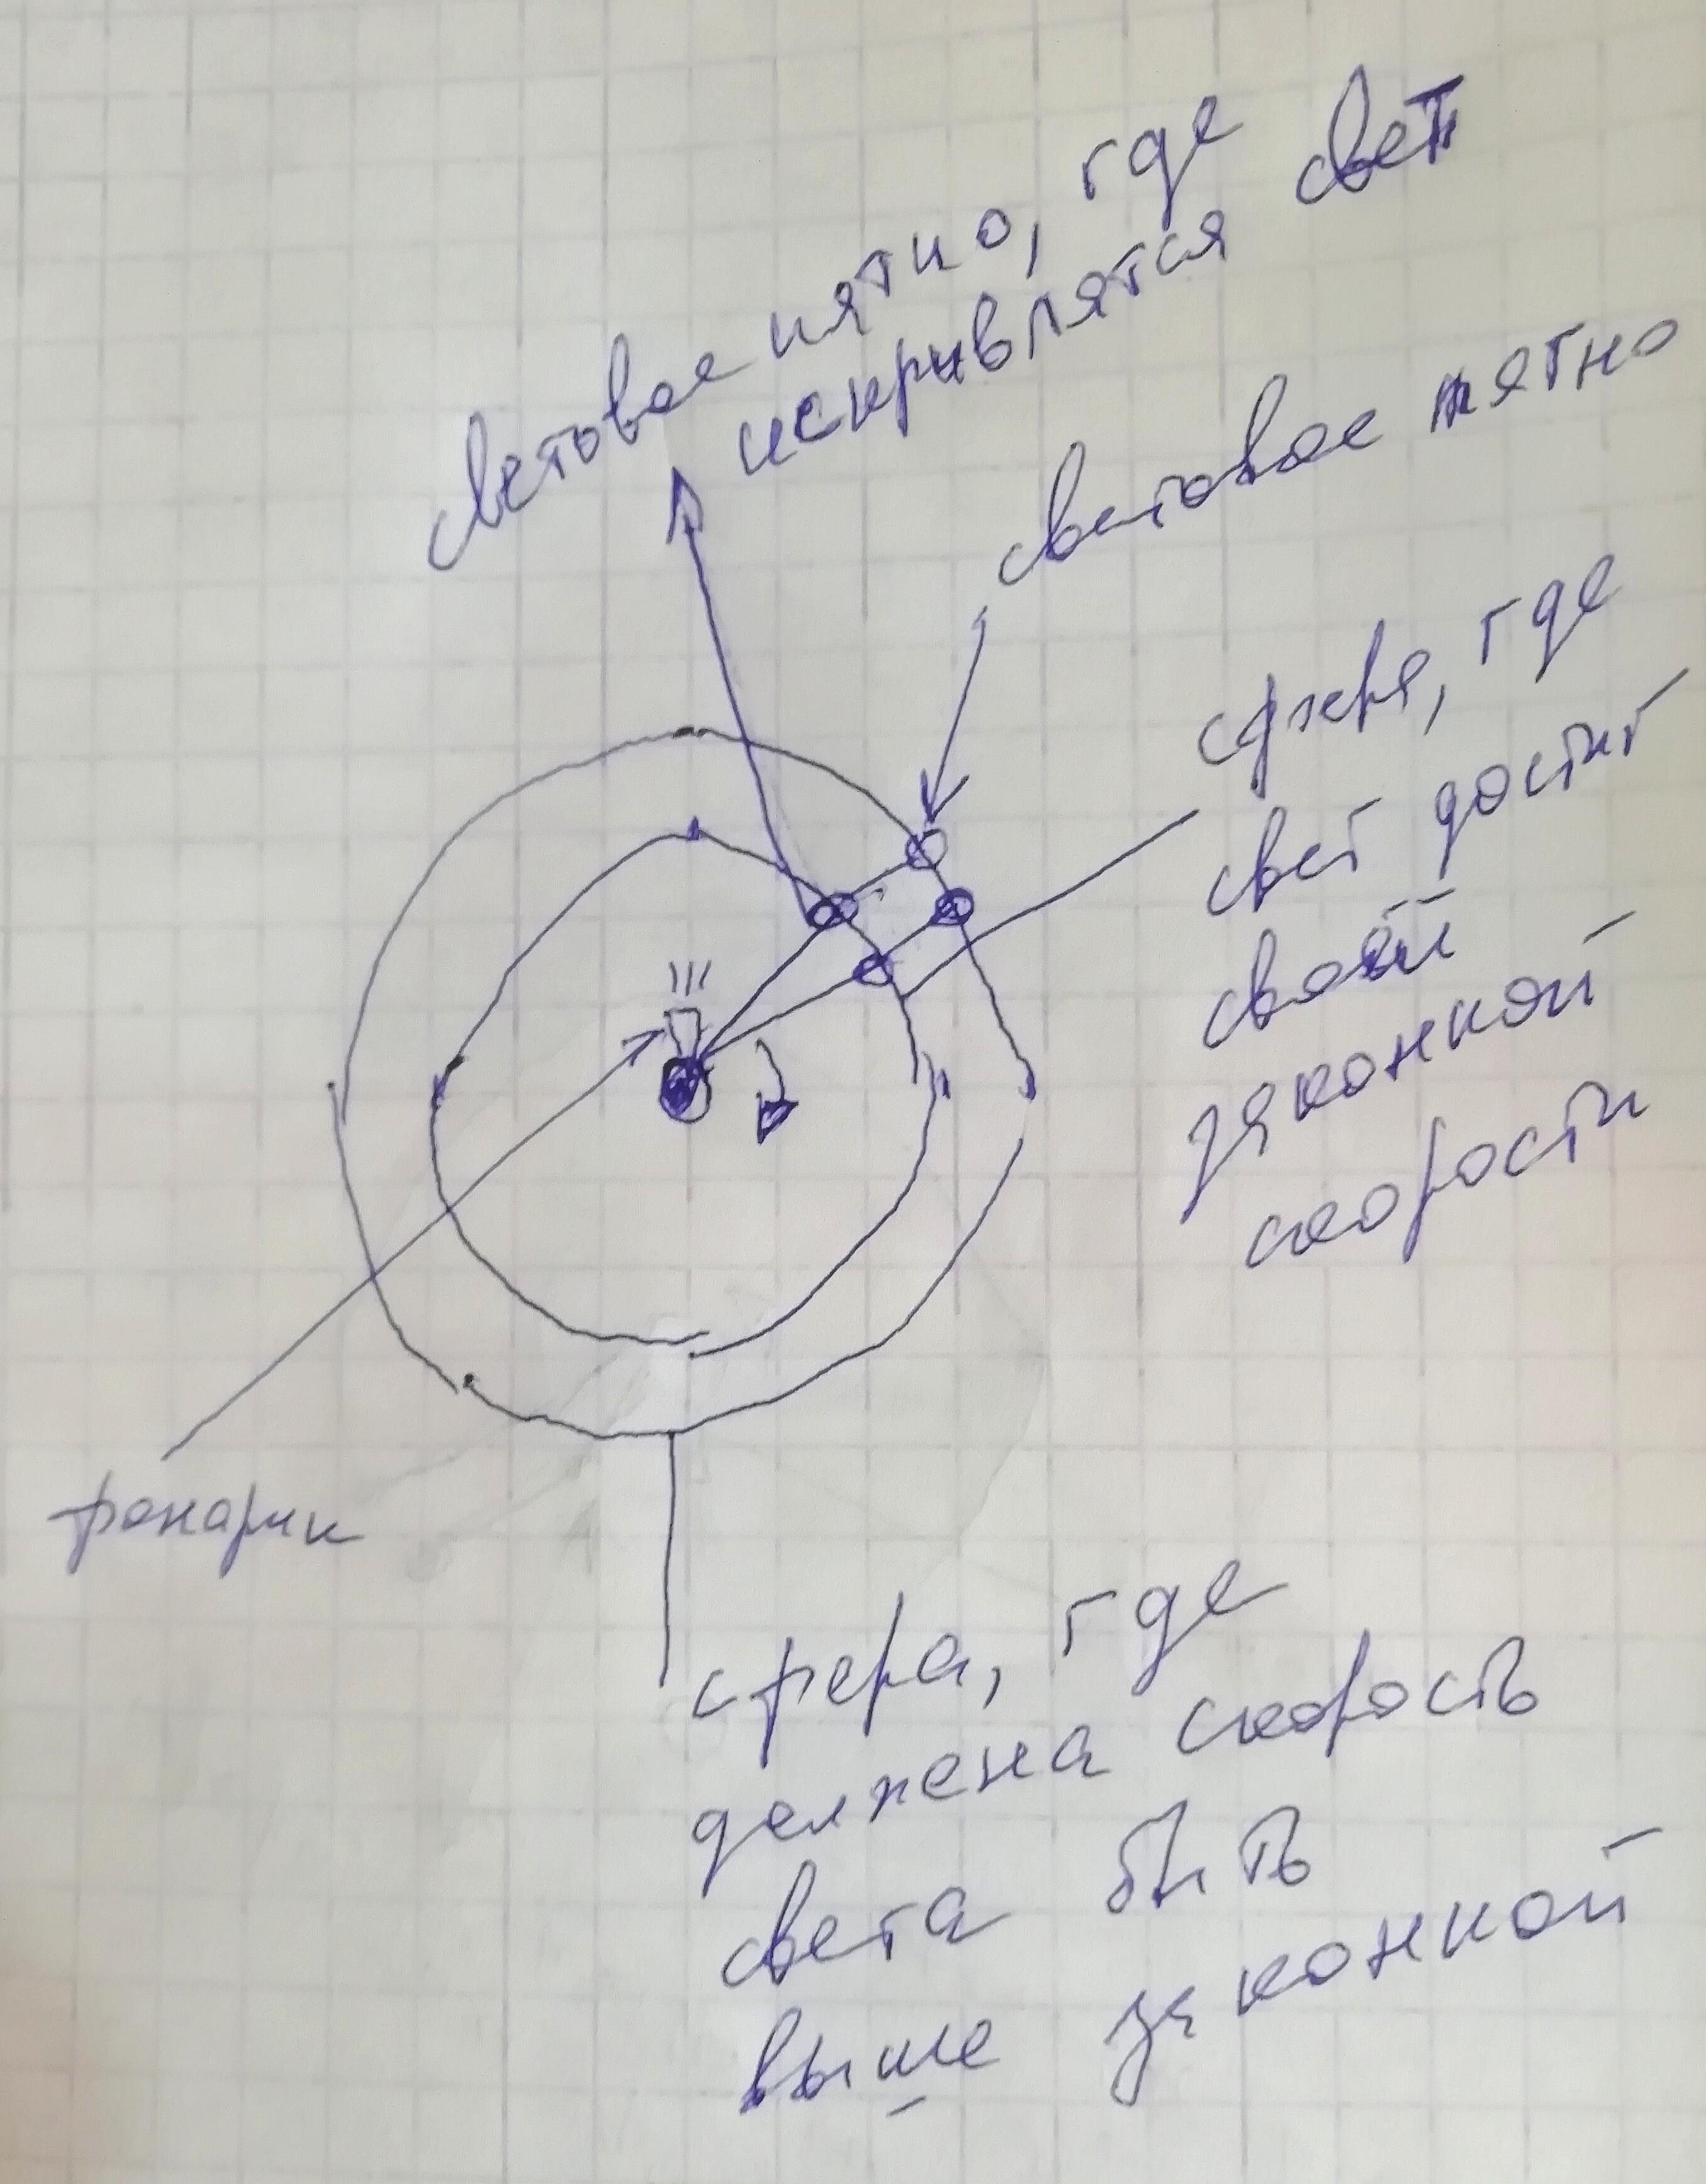 световое пятно, где
искривлятся свет
световое пятно
сфера, где
свет достиг
своей
законной
скорости
фонарик
сфера, где
должена скорость
света быть
выше законной